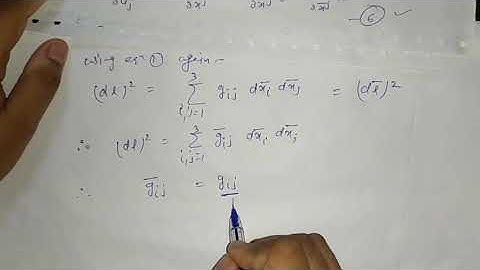 Using eqn ① again:-
(dl)² = ∑³ᵢ,ⱼ₌₁ gᵢⱼ dx̄ᵢ dx̄ⱼ = (dl̄)²
∴ (dl)² = ∑³ᵢ,ⱼ₌₁ ḡᵢⱼ dx̄ᵢ dx̄ⱼ
∴ ḡᵢⱼ = gᵢⱼ